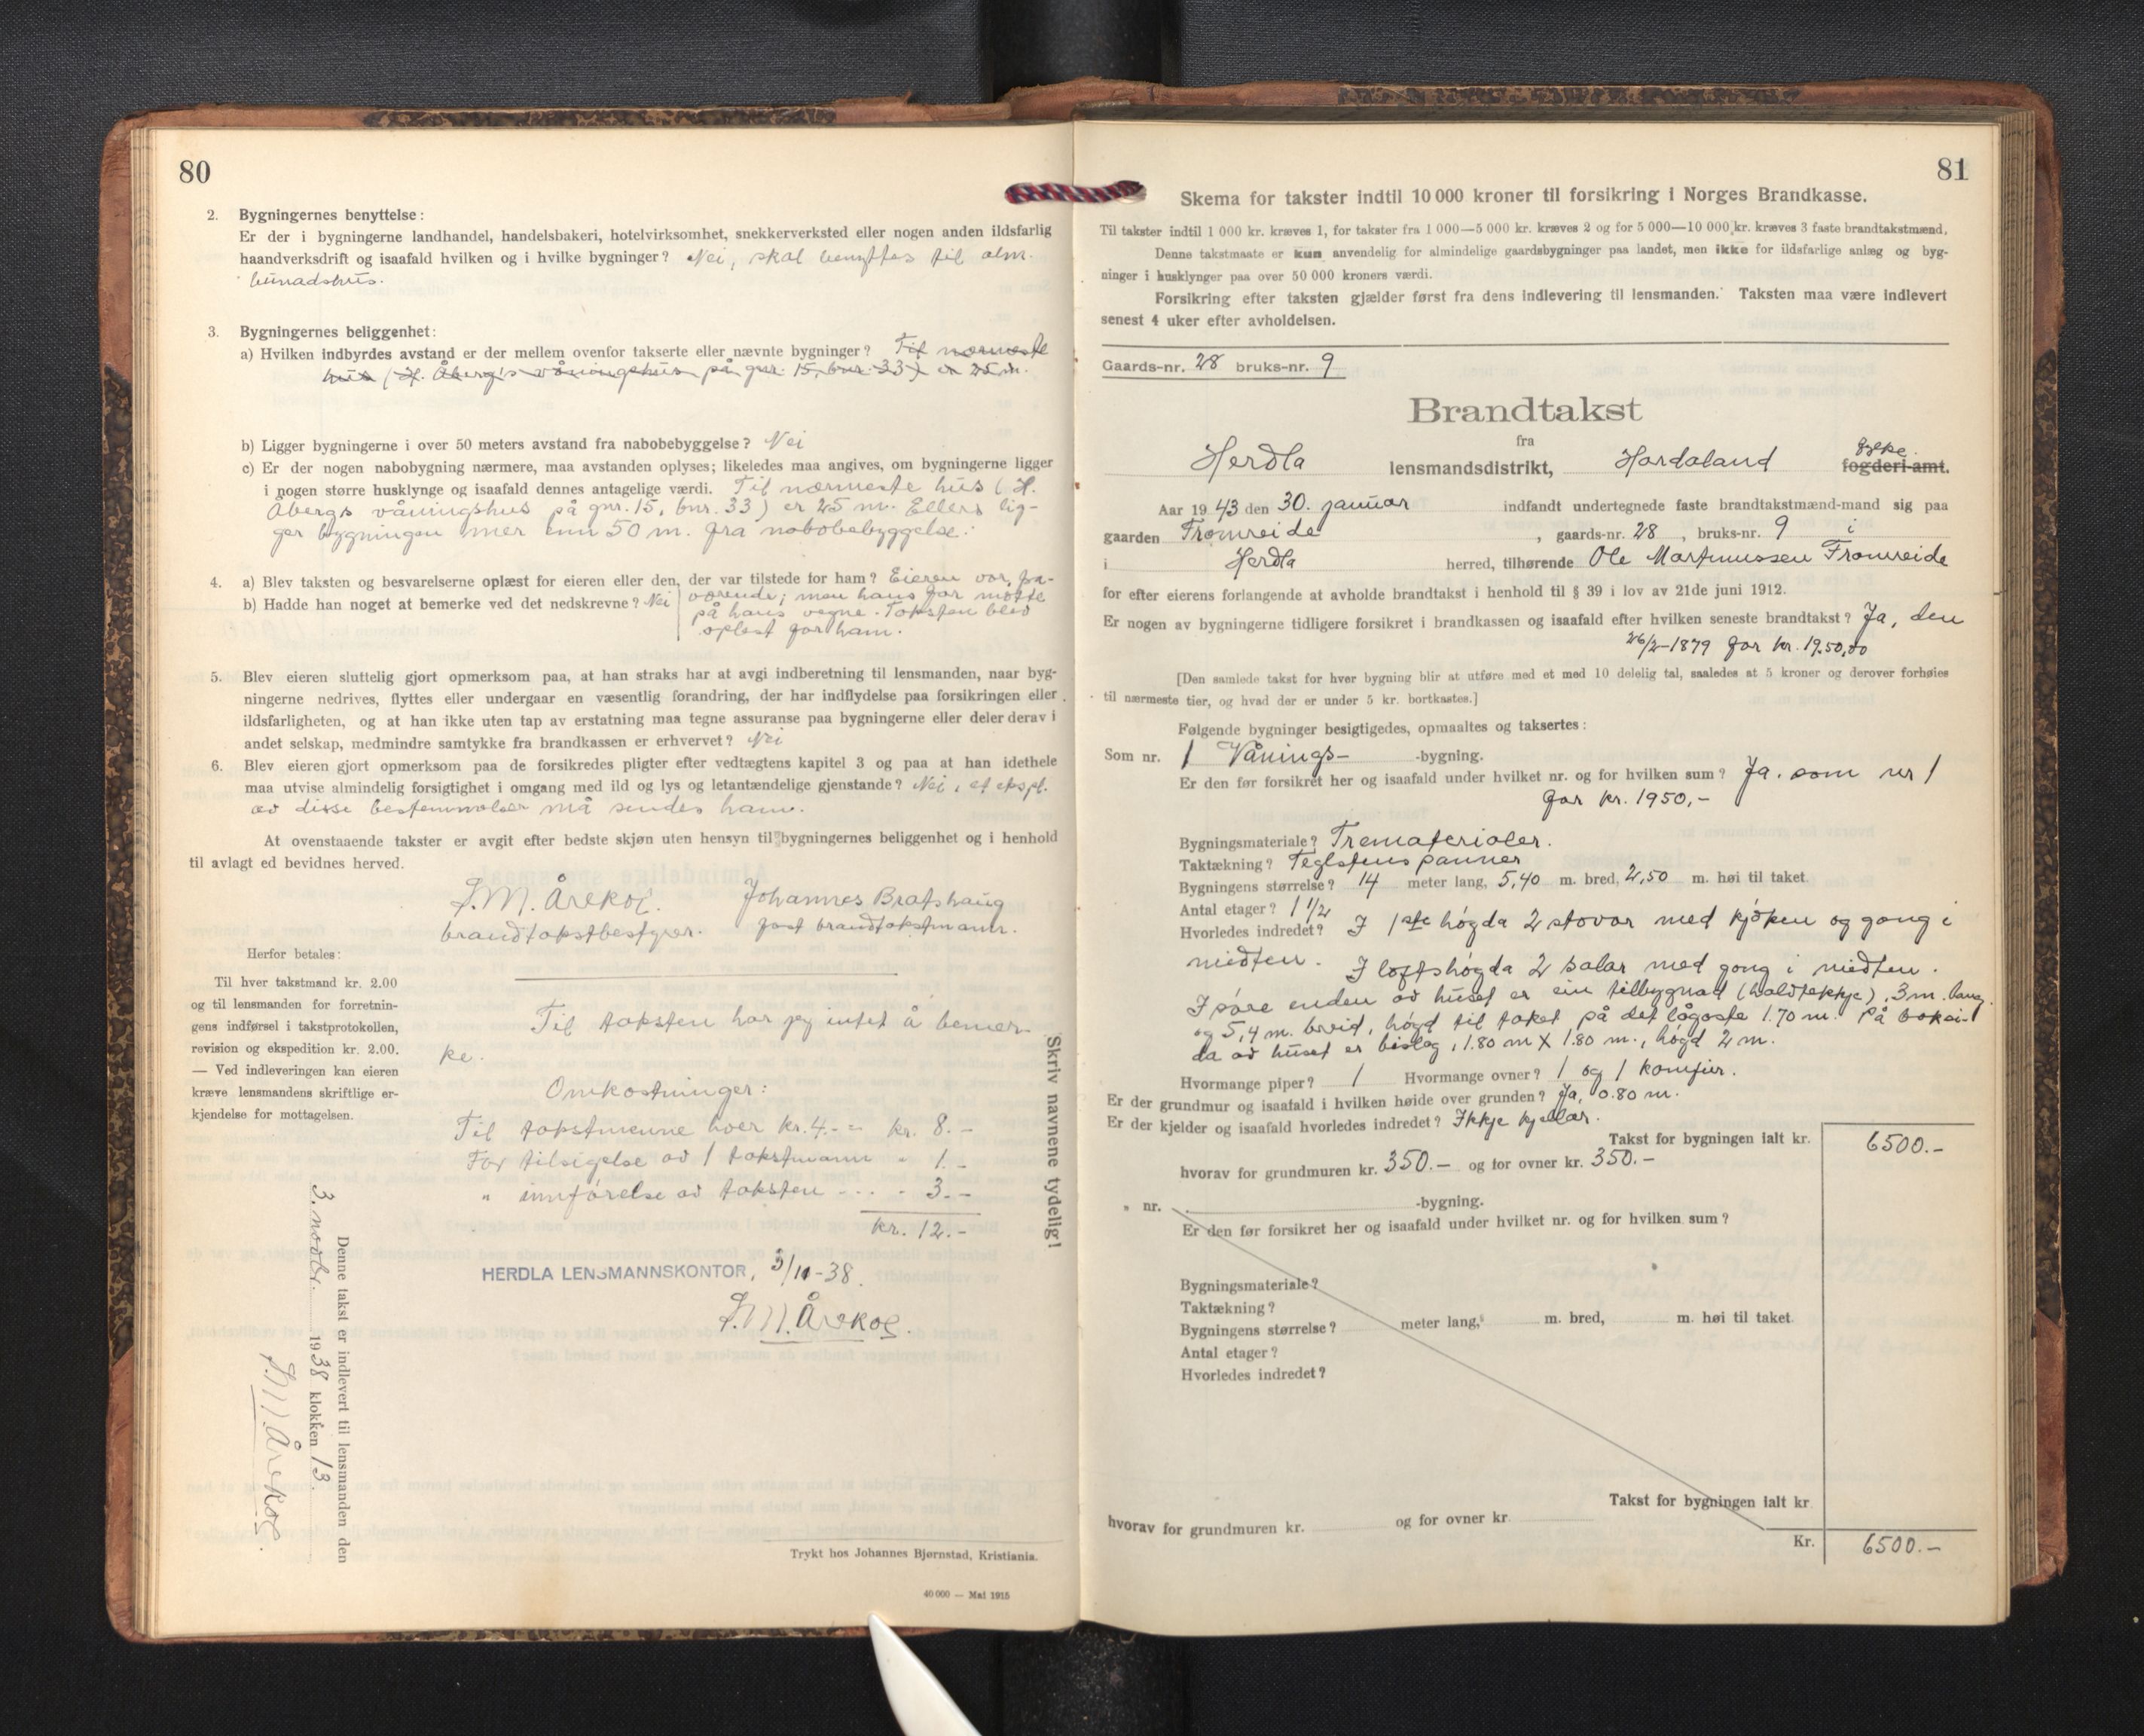 80
2. Bygningernes benyttelse:
Er der i bygningerne landhandel, handelsbakeri, hotelvirksomhet, snekkerverksted eller nogen anden ildsfarlig
haandverksdrift og isaafald hvilken og i hvilke bygninger? Nei, skal benyttes til alm.
bunadshus.
3. Bygningernes beliggenhet:
a) Hvilken indbyrdes avstand er der mellem ovenfor takserte eller nævnte bygninger? Til nærmeste
hus (H. Åberg's våningshus på gnr. 15, bnr. 33) er 25 m.
b) Ligger bygningerne i over 50 meters avstand fra nabobebyggelse? Nei
c) Er der nogen nabobygning nærmere, maa avstanden oplyses; likeledes maa angives, om bygningerne ligger
i nogen større husklynge og isaafald dennes antagelige værdi. Til nærmeste hus (H.
Åbergs våningshus på gnr. 15, bnr. 33) er 25 m. Ellers lig-
ger bygningen mer enn 50 m. fra nabobebyggelse.
4. a) Blev taksten og besvarelserne oplæst for eieren eller den, der var tilstede for ham? Eieren var fra-
b) Hadde han noget at bemerke ved det nedskrevne? Nei værende; men hans far møtte
på hans vegne. Taksten blev
oplest for ham.
5. Blev eieren sluttelig gjort opmerksom paa, at han straks har at avgi indberetning til lensmanden, naar byg-
ningerne nedrives, flyttes eller undergaar en væsentlig forandring, der har indflydelse paa forsikringen eller
ildsfarligheten, og at han ikke uten tap av erstatning maa tegne assuranse paa bygningerne eller deler derav i
andet selskap, medmindre samtykke fra brandkassen er erhvervet? Nei
6. Blev eieren gjort opmerksom paa de forsikredes pligter efter vedtægtens kapitel 3 og paa at han idethele
maa utvise almindelig forsigtighet i omgang med ild og lys og letantændelige gjenstande? Nei, et ekspl.
av disse bestemmelser må sendes ham.
At ovenstaaende takster er avgit efter bedste skjøn uten hensyn til bygningernes beliggenhet og i henhold
til avlagt ed bevidnes herved.
J.M. Årekol. Johannes Bratshaug
brandtakstbestyrer. fast brandtakstmann.
Herfor betales:
Til hver takstmand kr. 2.00
og til lensmanden for forretnin-
gens indførsel i takstprotokollen,
revision og ekspedition kr. 2.00.
— Ved indleveringen kan eieren
kræve lensmandens skriftlige er-
kjendelse for mottagelsen.
Til taksten har jeg intet å bemer-
ke.
Omkostninger:
Til takstmenne hver kr. 4.- = kr. 8.-
For tilsigelse av 1 takstmann " 1.-
" innførelse av taksten - - - " 3.-
kr. 12.-
HERDLA LENSMANNSKONTOR, 3/11-38.
J.M. Årekol.
Skriv navnene tydelig!
Denne takst er indlevert til lensmanden den
3. novbr. 1938 klokken 13.
J.M. Årekol.
Trykt hos Johannes Bjørnstad, Kristiania.
40 000 — Mai 1915
81
Skema for takster indtil 10 000 kroner til forsikring i Norges Brandkasse.
Til takster indtil 1 000 kr. kræves 1, for takster fra 1 000—5 000 kr. kræves 2 og for 5 000—10 000 kr. kræves 3 faste brandtakstmænd.
Denne takstmaate er kun anvendelig for almindelige gaardsbygninger paa landet, men ikke for ildsfarlige anlæg og byg-
ninger i husklynger paa over 50 000 kroners værdi.
Forsikring efter taksten gjælder først fra dens indlevering til lensmanden. Taksten maa være indlevert
senest 4 uker efter avholdelsen.
Gaards-nr. 28 bruks-nr. 9
Brandtakst
fra
Herdla lensmandsdistrikt, Hordaland fylke
fogderi-amt.
Aar 1943 den 30. januar indfandt undertegnede faste brandtakstmænd-mand sig paa
gaarden Fromreide, gaards-nr. 28, bruks-nr. 9 i
i Herdla herred, tilhørende Ole Martinussen Fromreide
for efter eierens forlangende at avholde brandtakst i henhold til § 39 i lov av 21de juni 1912.
Er nogen av bygningerne tidligere forsikret i brandkassen og isaafald efter hvilken seneste brandtakst? Ja, den
26/2-1879 for kr. 1950,00
[Den samlede takst for hver bygning blir at utføre med et med 10 delelig tal, saaledes at 5 kroner og derover forhøies
til nærmeste tier, og hvad der er under 5 kr. bortkastes.]
Følgende bygninger besigtigedes, opmaaltes og taksertes:
Som nr. 1 Vånings- -bygning.
Er den før forsikret her og isaafald under hvilket nr. og for hvilken sum? Ja. som nr 1
for kr. 1950,-
Bygningsmateriale? Trematerialer.
Taktækning? Teglstens panner
Bygningens størrelse? 14 meter lang, 5,40 m. bred, 2,50 m. høi til taket.
Antal etager? 1 1/2
Hvorledes indredet? I 1ste høgda 2 stovor med kjøken og gang i
midten. I loftshøgda 2 salar med gong i midten.
I søre enden av huset er ein tilbygnad (haldtekkje), 3 m. lang
og 5,4 m. breid, høgd til taket på det lågaste 1.70 m. På baksi-
da av huset er bislag, 1.80 m X 1.80 m., høgd 2 m.
Hvormange piper? 1 Hvormange ovner? 1 og 1 komfur.
Er der grundmur og isaafald i hvilken høide over grunden? Ja, 0.80 m.
Er der kjelder og isaafald hvorledes indredet? Ikkje kjellar.
Takst for bygningen ialt kr. 6500.-
hvorav for grundmuren kr. 350.- og for ovner kr. 350.-
" nr. -bygning.
Er den før forsikret her og isaafald under hvilket nr. og for hvilken sum?
Bygningsmateriale?
Taktækning?
Bygningens størrelse? meter lang, m. bred, m. høi til taket.
Antal etager?
Hvorledes indredet?
Takst for bygningen ialt kr
hvorav for grundmuren kr. og for ovner kr.
Kr. 6500.-